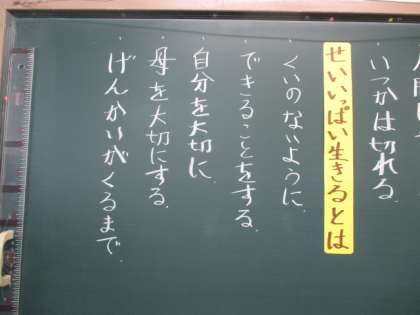 いつかは切れる。
せいいっぱい生きるとは
・くいのないように。
・できることをする。
・自分を大切に。
・母を大切にする。
・げんかいがくるまで。